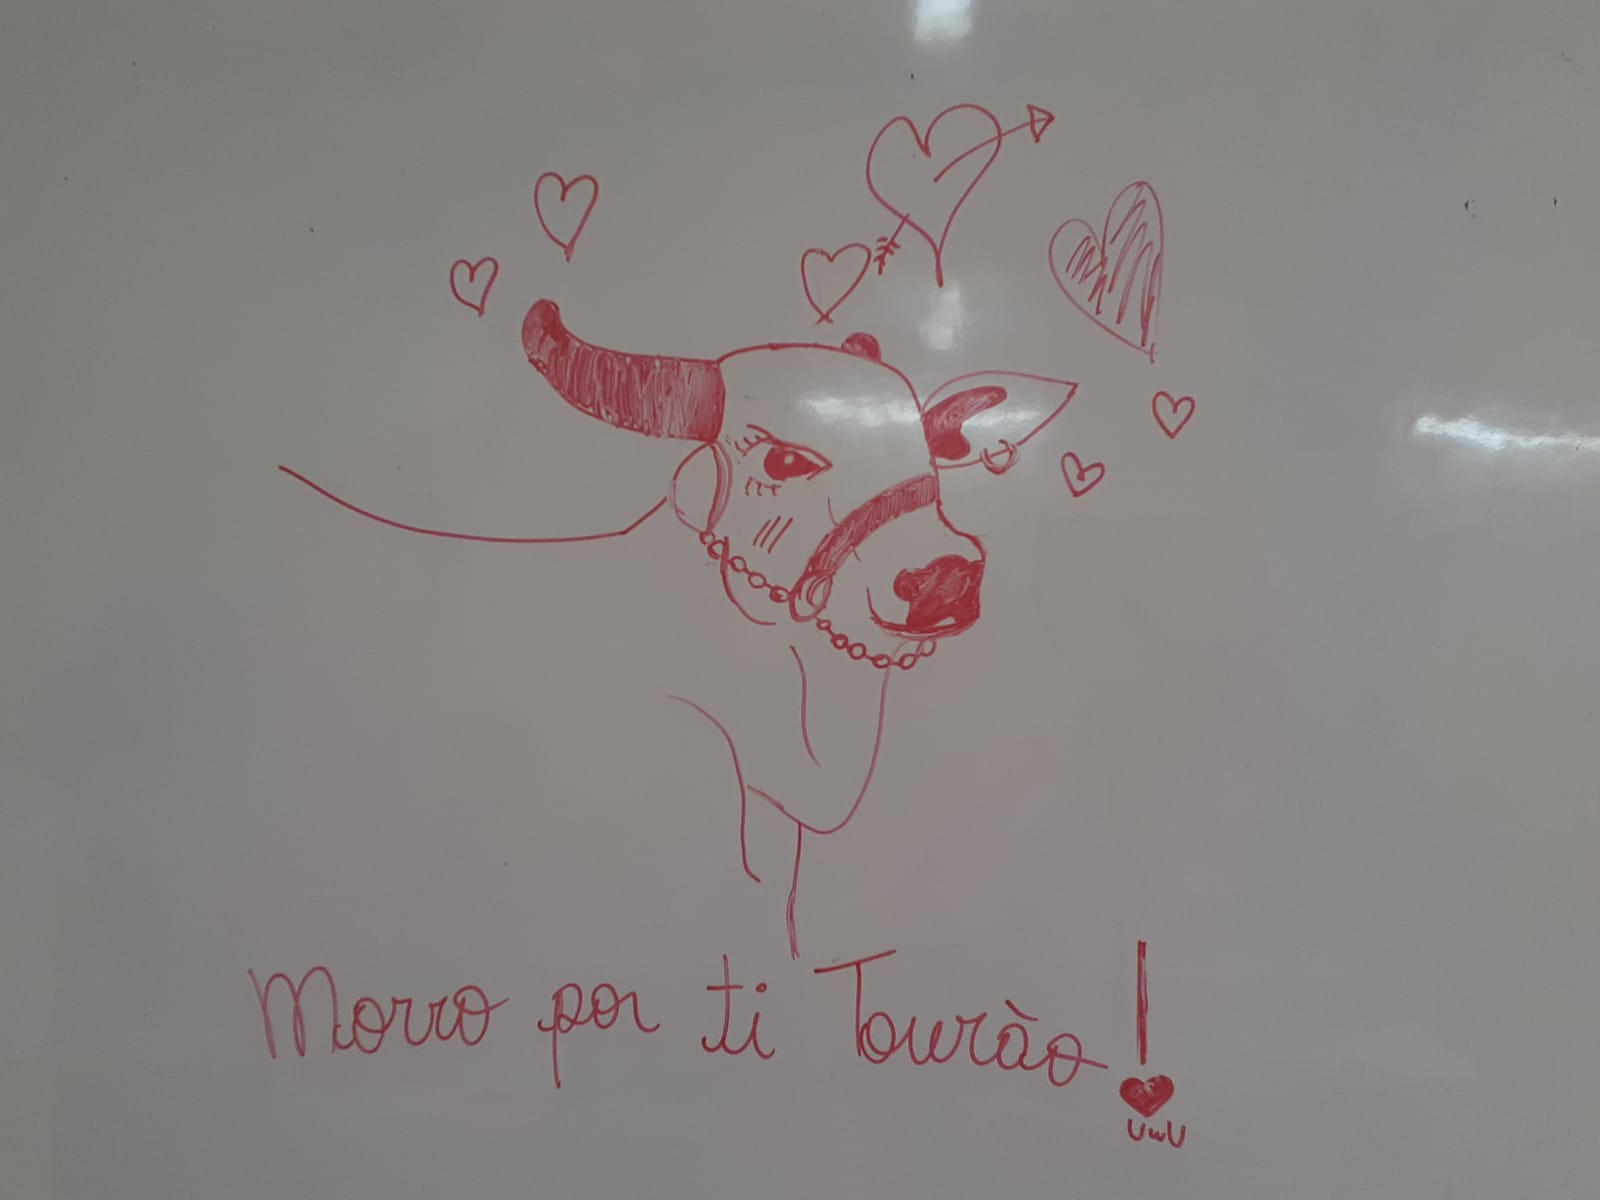 Morro por ti Touràο!
UwU